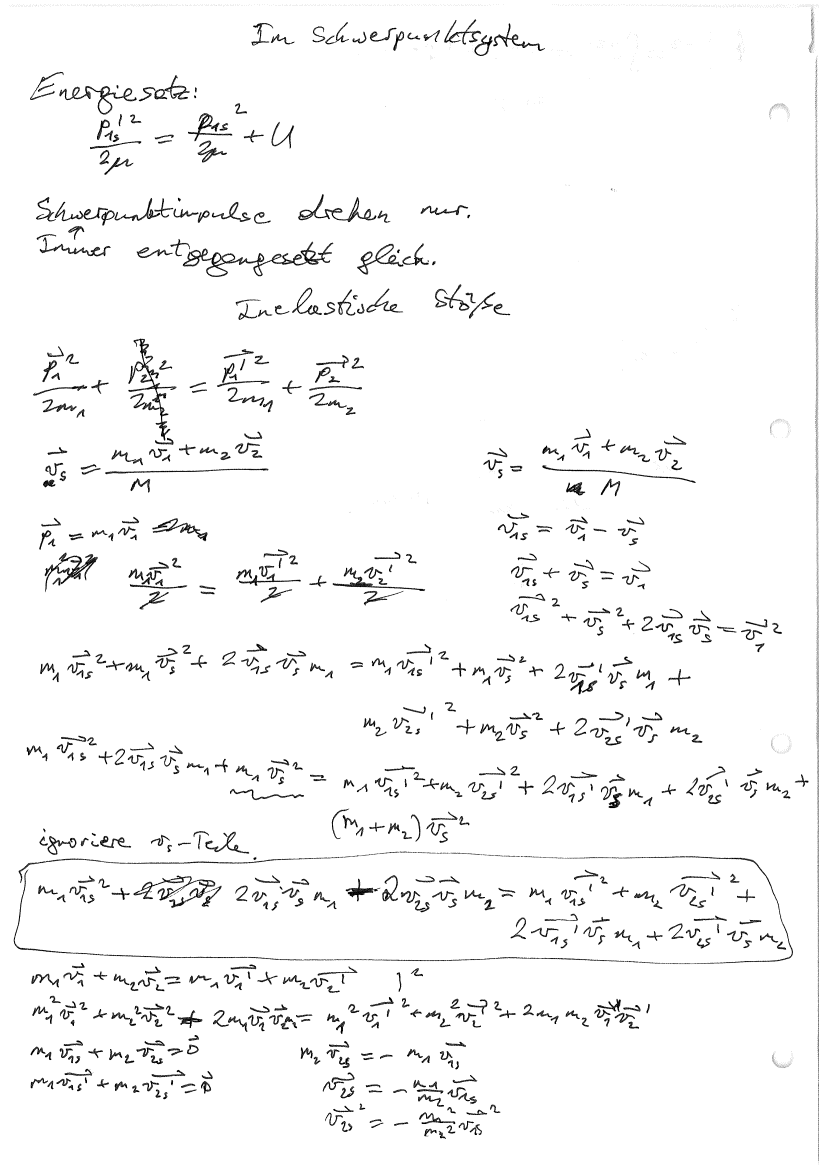 Im Schwerpunktsystem
Energiesatz:
p₁ₛ'²/2μ = p₁ₛ²/2μ + U
Schwerpunktimpulse drehen nur.
Immer entgegengesetzt gleich.
Inelastische Stöße
p⃗₁²/2m₁ + = p⃗₁'²/2m₁ + p⃗₂'²/2m₂
v⃗ₛ = (m₁v⃗₁ + m₂v⃗₂)/M
v⃗ₛ = (m₁v⃗₁ + m₂v⃗₂)/M
p⃗₁ = m₁v⃗₁
v⃗₁ₛ = v⃗₁ - v⃗ₛ
m₁v⃗₁²/2 = m₁v⃗₁'²/2 + m₂v⃗₂'²/2
v⃗₁ₛ + v⃗ₛ = v⃗₁
v⃗₁ₛ² + v⃗ₛ² + 2v⃗₁ₛv⃗ₛ = v⃗₁²
m₁v⃗₁ₛ² + m₁v⃗ₛ² + 2v⃗₁ₛv⃗ₛm₁ = m₁v⃗₁ₛ'² + m₁v⃗ₛ² + 2v⃗₁ₛ'v⃗ₛm₁ +
m₂v⃗₂ₛ'² + m₂v⃗ₛ² + 2v⃗₂ₛ'v⃗ₛm₂
m₁v⃗₁ₛ² + 2v⃗₁ₛv⃗ₛm₁ + m₁v⃗ₛ² = m₁v⃗₁ₛ'² + m₂v⃗₂ₛ'² + 2v⃗₁ₛ'v⃗ₛm₁ + 2v⃗₂ₛ'v⃗ₛm₂ +
(m₁+m₂)v⃗ₛ²
ignoriere vₛ-Teile.
m₁v⃗₁ₛ² + 2v⃗₁ₛv⃗ₛm₁ + 2v⃗₂ₛv⃗ₛm₂ = m₁v⃗₁ₛ'² + m₂v⃗₂ₛ'² +
2v⃗₁ₛ'v⃗ₛm₁ + 2v⃗₂ₛ'v⃗ₛm₂
m₁v⃗₁ + m₂v⃗₂ = m₁v⃗₁' + m₂v⃗₂' |²
m₁²v⃗₁² + m₂²v⃗₂² + 2m₁v⃗₁v⃗₂m₂ = m₁²v⃗₁'² + m₂²v⃗₂'² + 2m₁m₂v⃗₁'v⃗₂'
m₁v⃗₁ₛ + m₂v⃗₂ₛ = 0⃗
m₂v⃗₂ₛ = -m₁v⃗₁ₛ
m₁v⃗₁ₛ' + m₂v⃗₂ₛ' = 0⃗
v⃗₂ₛ = -m₁/m₂ v⃗₁ₛ
v⃗₂ₛ² = -m₁²/m₂² v⃗₁ₛ²